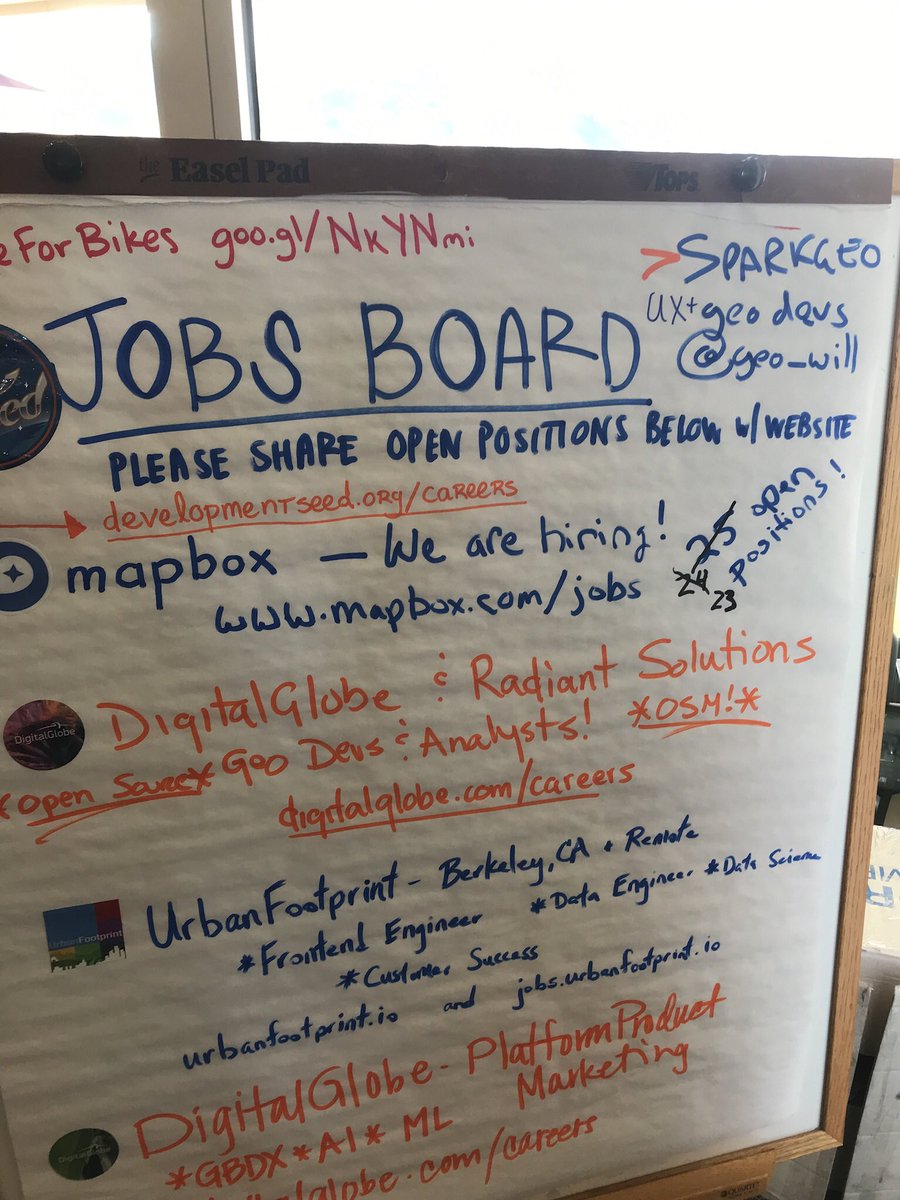 the Easel Pad TOPS
e For Bikes goo.gl/NKYNmi
>SPARKGEO
UX+geo devs
@geo_will
JOBS BOARD
PLEASE SHARE OPEN POSITIONS BELOW w/ WEBSITE
developmentseed.org/careers
mapbox — We are hiring!
www.mapbox.com/jobs
25 open
24 23 positions!
DigitalGlobe
DigitalGlobe & Radiant Solutions
*Open Source* Geo Devs & Analysts! *OSM!*
digitalglobe.com/careers
UrbanFootprint
UrbanFootprint - Berkeley, CA + Remote
*Frontend Engineer *Data Engineer *Data Science
*Customer Success
urbanfootprint.io and jobs.urbanfootprint.io
DigitalGlobe
DigitalGlobe - Platform Product
Marketing
*GBDX *AI* ML
digitalglobe.com/careers